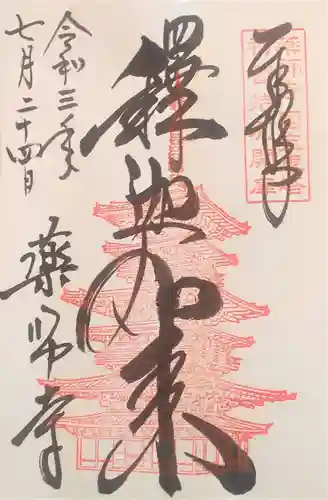 奉拝
釋迦如来
令和三年
七月二十四日
薬師寺